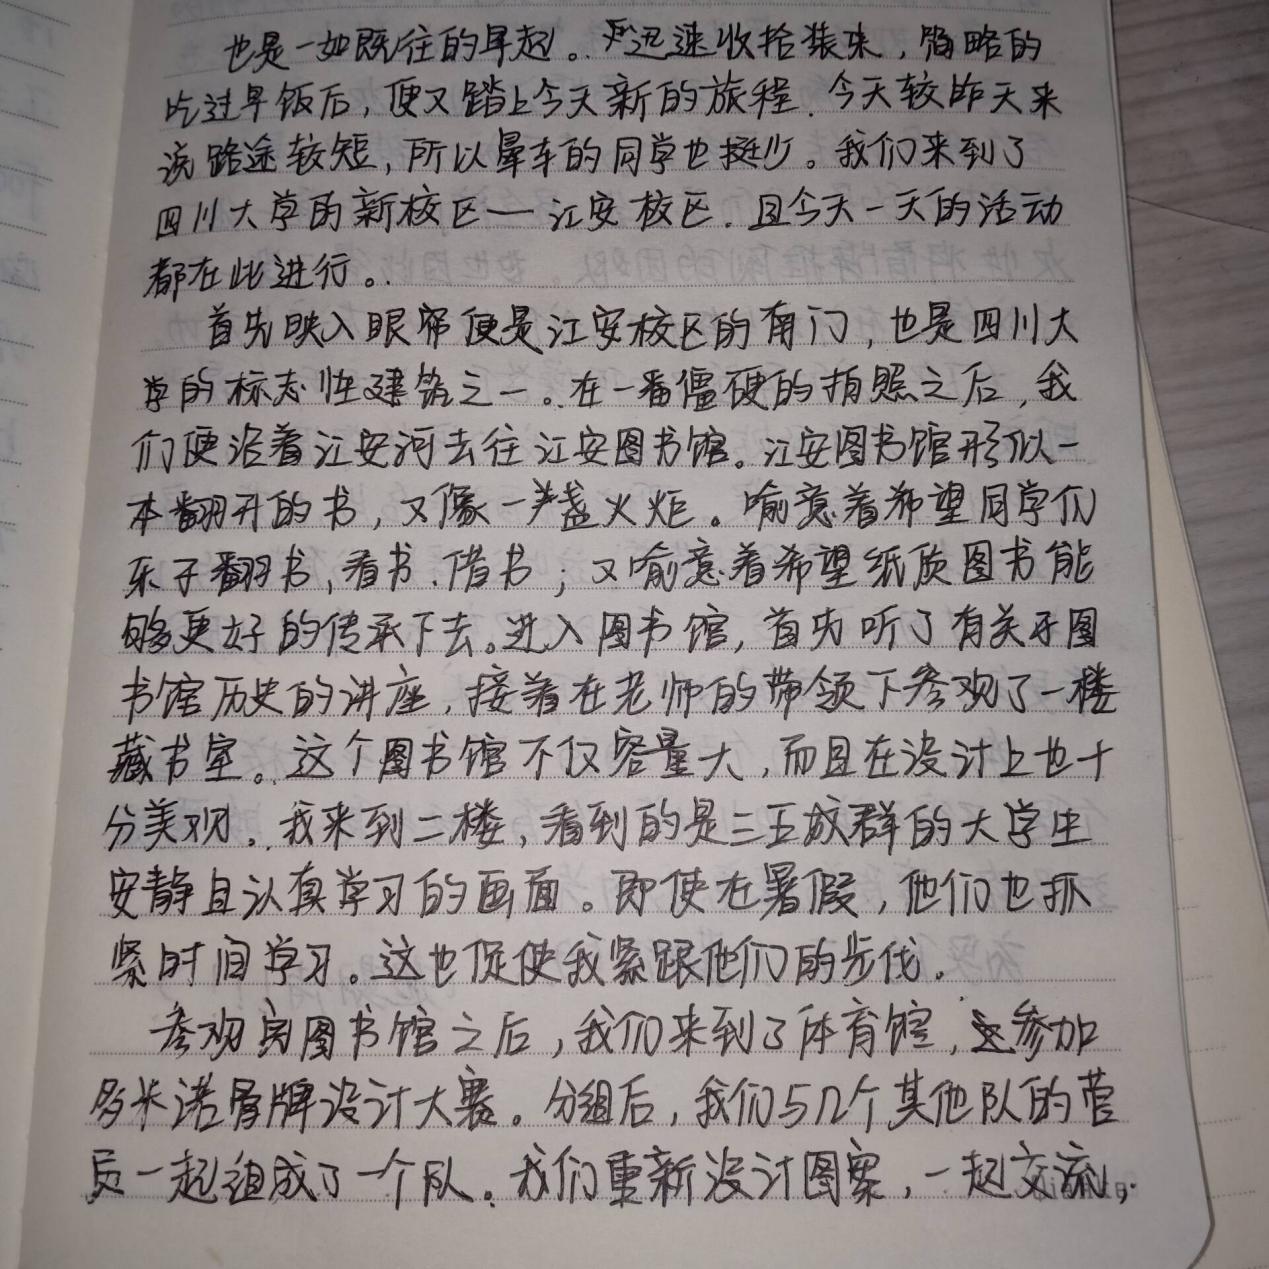 也是一如既往的早起。迅速收拾装束，简略的
吃过早饭后，便又踏上今天新的旅程．今天较昨天来
说路途较短，所以晕车的同学也挺少。我们来到了
四川大学的新校区—江安校区．且今天一天的活动
都在此进行。
首先映入眼帘便是江安校区的南门，也是四川大
学的标志性建筑之一。在一番僵硬的拍照之后，我
们便沿着江安河去往江安图书馆。江安图书馆形似一
本翻开的书，又像一盏火炬。喻意着希望同学们
乐于翻书，看书、借书；又喻意着希望纸质图书能
够更好的传承下去。进入图书馆，首先听了有关于图
书馆历史的讲座，接着在老师的带领下参观了一楼
藏书室。这个图书馆不仅容量大，而且在设计上也十
分美观。我来到二楼，看到的是三五成群的大学生
安静且认真学习的画面。即使在暑假，他们也抓
紧时间学习。这也促使我紧跟他们的步伐．
参观完图书馆之后，我们来到了体育馆，参加
多米诺骨牌设计大赛。分组后，我们与几个其他队的营
员一起组成了一个队。我们重新设计图案，一起交流，